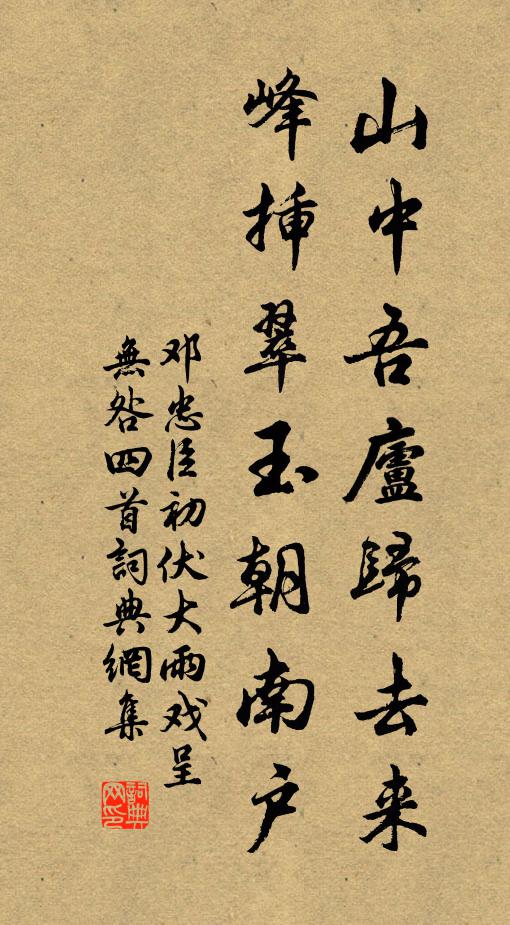 山中吾廬歸去来
峰挿翠玉朝南户
邓忠臣初伏大雨戏呈
無咎四首詞典網集
詞典网印